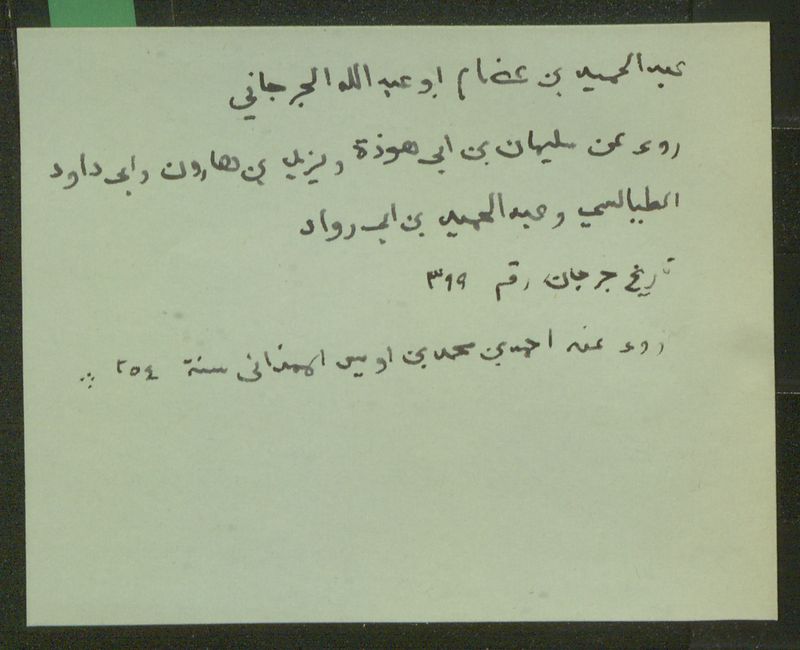 عبد الحميد بن عصام ابو عبد الله الجرجاني
روى عن سليمان بن ابي هوذة ويزيد بن هارون وابي داود
الطيالسي وعبد الحميد بن ابي رواد
تاريخ جرجان رقم ٣٩٩
روى عنه احمد بن محمد بن اويس الهمذاني سنة ٢٥٤